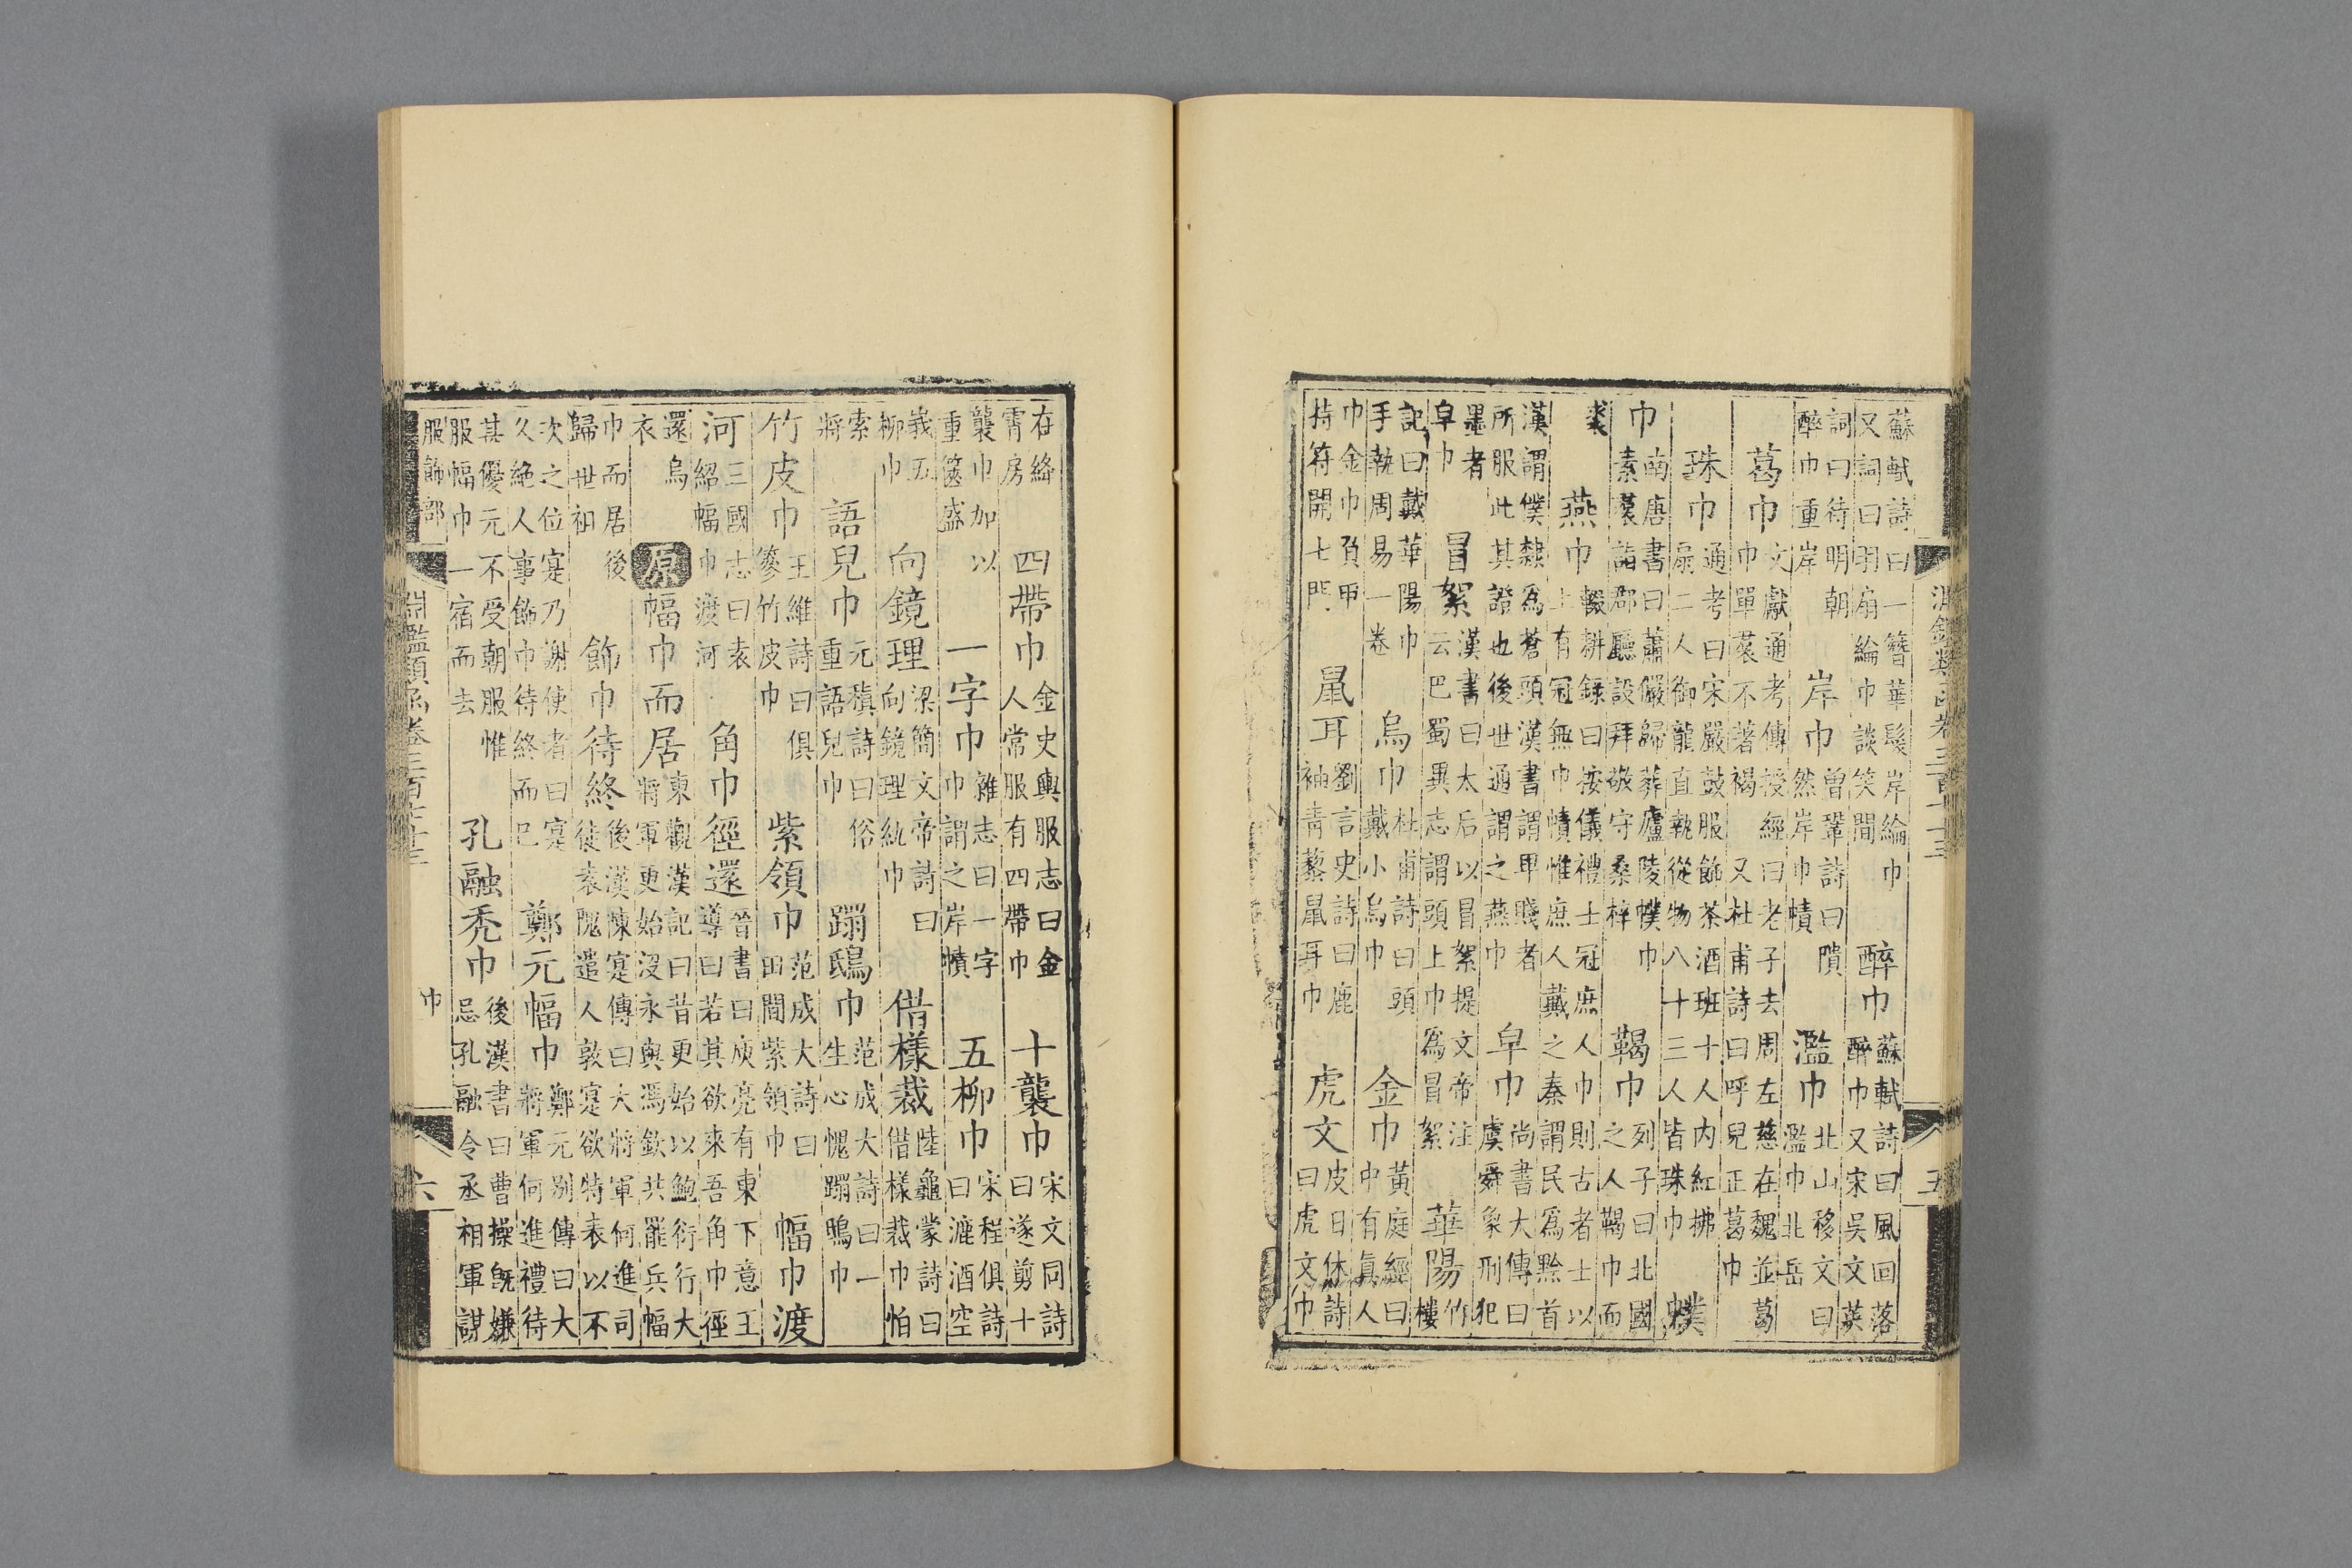 淵鑑類函卷三百七十三 五
蘇軾詩曰一簪華髮岸綸巾
又詞曰羽扇綸巾談笑間
醉巾
蘇軾詩曰風回落
醉巾又宋吳文英
詞曰待明朝
醉巾重岸
岸巾
曾鞏詩曰隤
然岸巾幘
濫巾
北山移文曰
濫巾北岳
葛巾
文獻通考傳授經曰老子去周左慈在魏並葛
巾單裘不著褐 又杜甫詩曰呼兒正葛巾
珠巾
通考曰宋嚴鼓服飾茶酒班十人內紅拂
扇二人御龍直執從物八十三人皆珠巾
幞
巾
南唐書曰蕭儼歸葬廬陵幞巾
素裘詣郡廳設拜敬守桑梓
鞨巾
列子曰北國
之人鞨巾而
裘
燕巾
輟耕録曰按儀禮士冠庶人巾則古者士以
上有冠無巾幘惟庶人戴之秦謂民爲黔首
漢謂僕隸爲蒼頭漢書謂卑賤者
所服此其證也後世通謂之燕巾
皁巾
尚書大傳曰
虞舜象刑犯
墨者
皁巾
冒絮
漢書曰太后以冒絮提文帝注
云巴蜀異志謂頭上巾爲冒絮
華陽
竹
樓
記曰戴華陽巾
手執周易一卷
烏巾
杜甫詩曰頭
戴小烏巾
金巾
黃庭經曰
中有眞人
巾金巾負甲
持符開七門
鼠耳
劉言史詩曰鹿
袖青藜鼠耳巾
虎文
皮日休詩
曰虎文巾
在絳
霄房
四帶巾
金史輿服志曰金
人常服有四帶巾
十襲巾
宋文同詩
曰遂剪十
襲巾加以
重篋盛
一字巾
雜志曰一字
巾謂之岸幘
五柳巾
宋程俱詩
曰漉酒空
峩五
柳巾
向鏡理
梁簡文帝詩曰
向鏡理紈巾
借樣裁
陸龜蒙詩曰
借樣裁巾怕
索
將
語兒巾
元稹詩曰俗
重語兒巾
蹋鴟巾
范成大詩曰一
生心愧蹋鴟巾
竹皮巾
王維詩曰俱
簝竹皮巾
紫領巾
范成大詩曰
田間紫領巾
幅巾渡
河
三國志曰袁
紹幅巾渡河
角巾徑還
晉書曰庾亮有東下意王
導曰若其欲來吾角巾徑
還烏
衣
原
幅巾而居
東觀漢記曰昔更始以鮑衍行大
將軍更始沒永與馮欽共罷兵幅
巾而居後
歸世祖
飾巾待終
後漢陳寔傳曰大將軍何進司
徒袁隗遣人敦寔欲特表以不
次之位寔乃謝使者曰寔
久絶人事飾巾待終而已
鄭元幅巾
鄭元别傳曰大
將軍何進禮待
甚優元不受朝服惟
服幅巾一宿而去
孔融禿巾
後漢書曰曹操旣嫌
忌孔融令丞相軍謀
服飾部 淵鑑類函卷三百七十三 巾 六